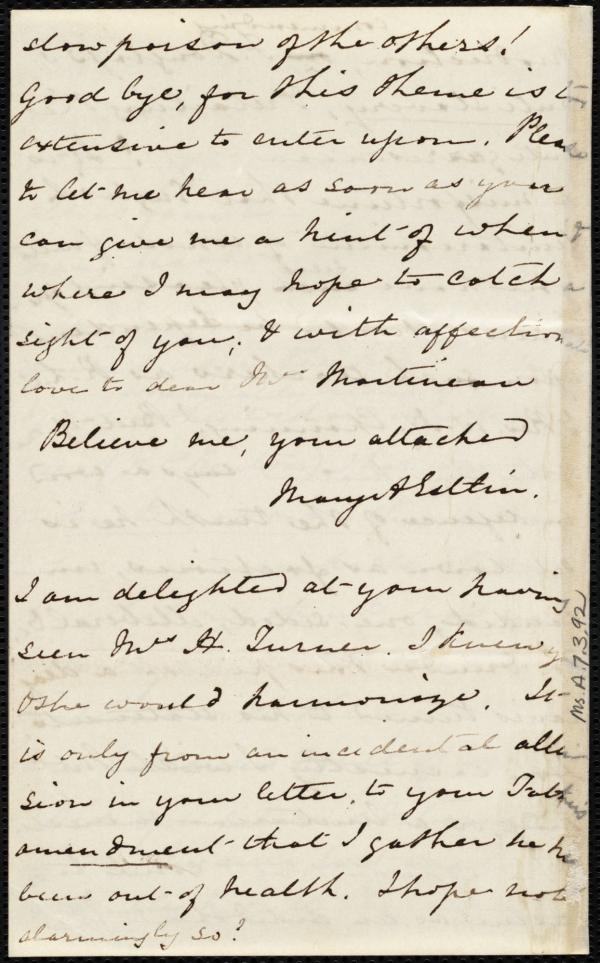 slow poison of the others!
Good bye, for this theme is
extensive to enter upon. Please
to let me hear as soon as you
can give me a hint of when &
where I may hope to catch a
sight of you; & with affectionate
love to dear Mrs Martineau
Believe me, your attached
Mary A Estlin.
I am delighted at your having
seen Mrs H. Turner. I knew
& she would harmonize. It
is only from an incidental allu
sion in your letter, to your
amendment that I gather he has
been out of health. I hope not
alarmingly so?
Ms.A.7.3.92